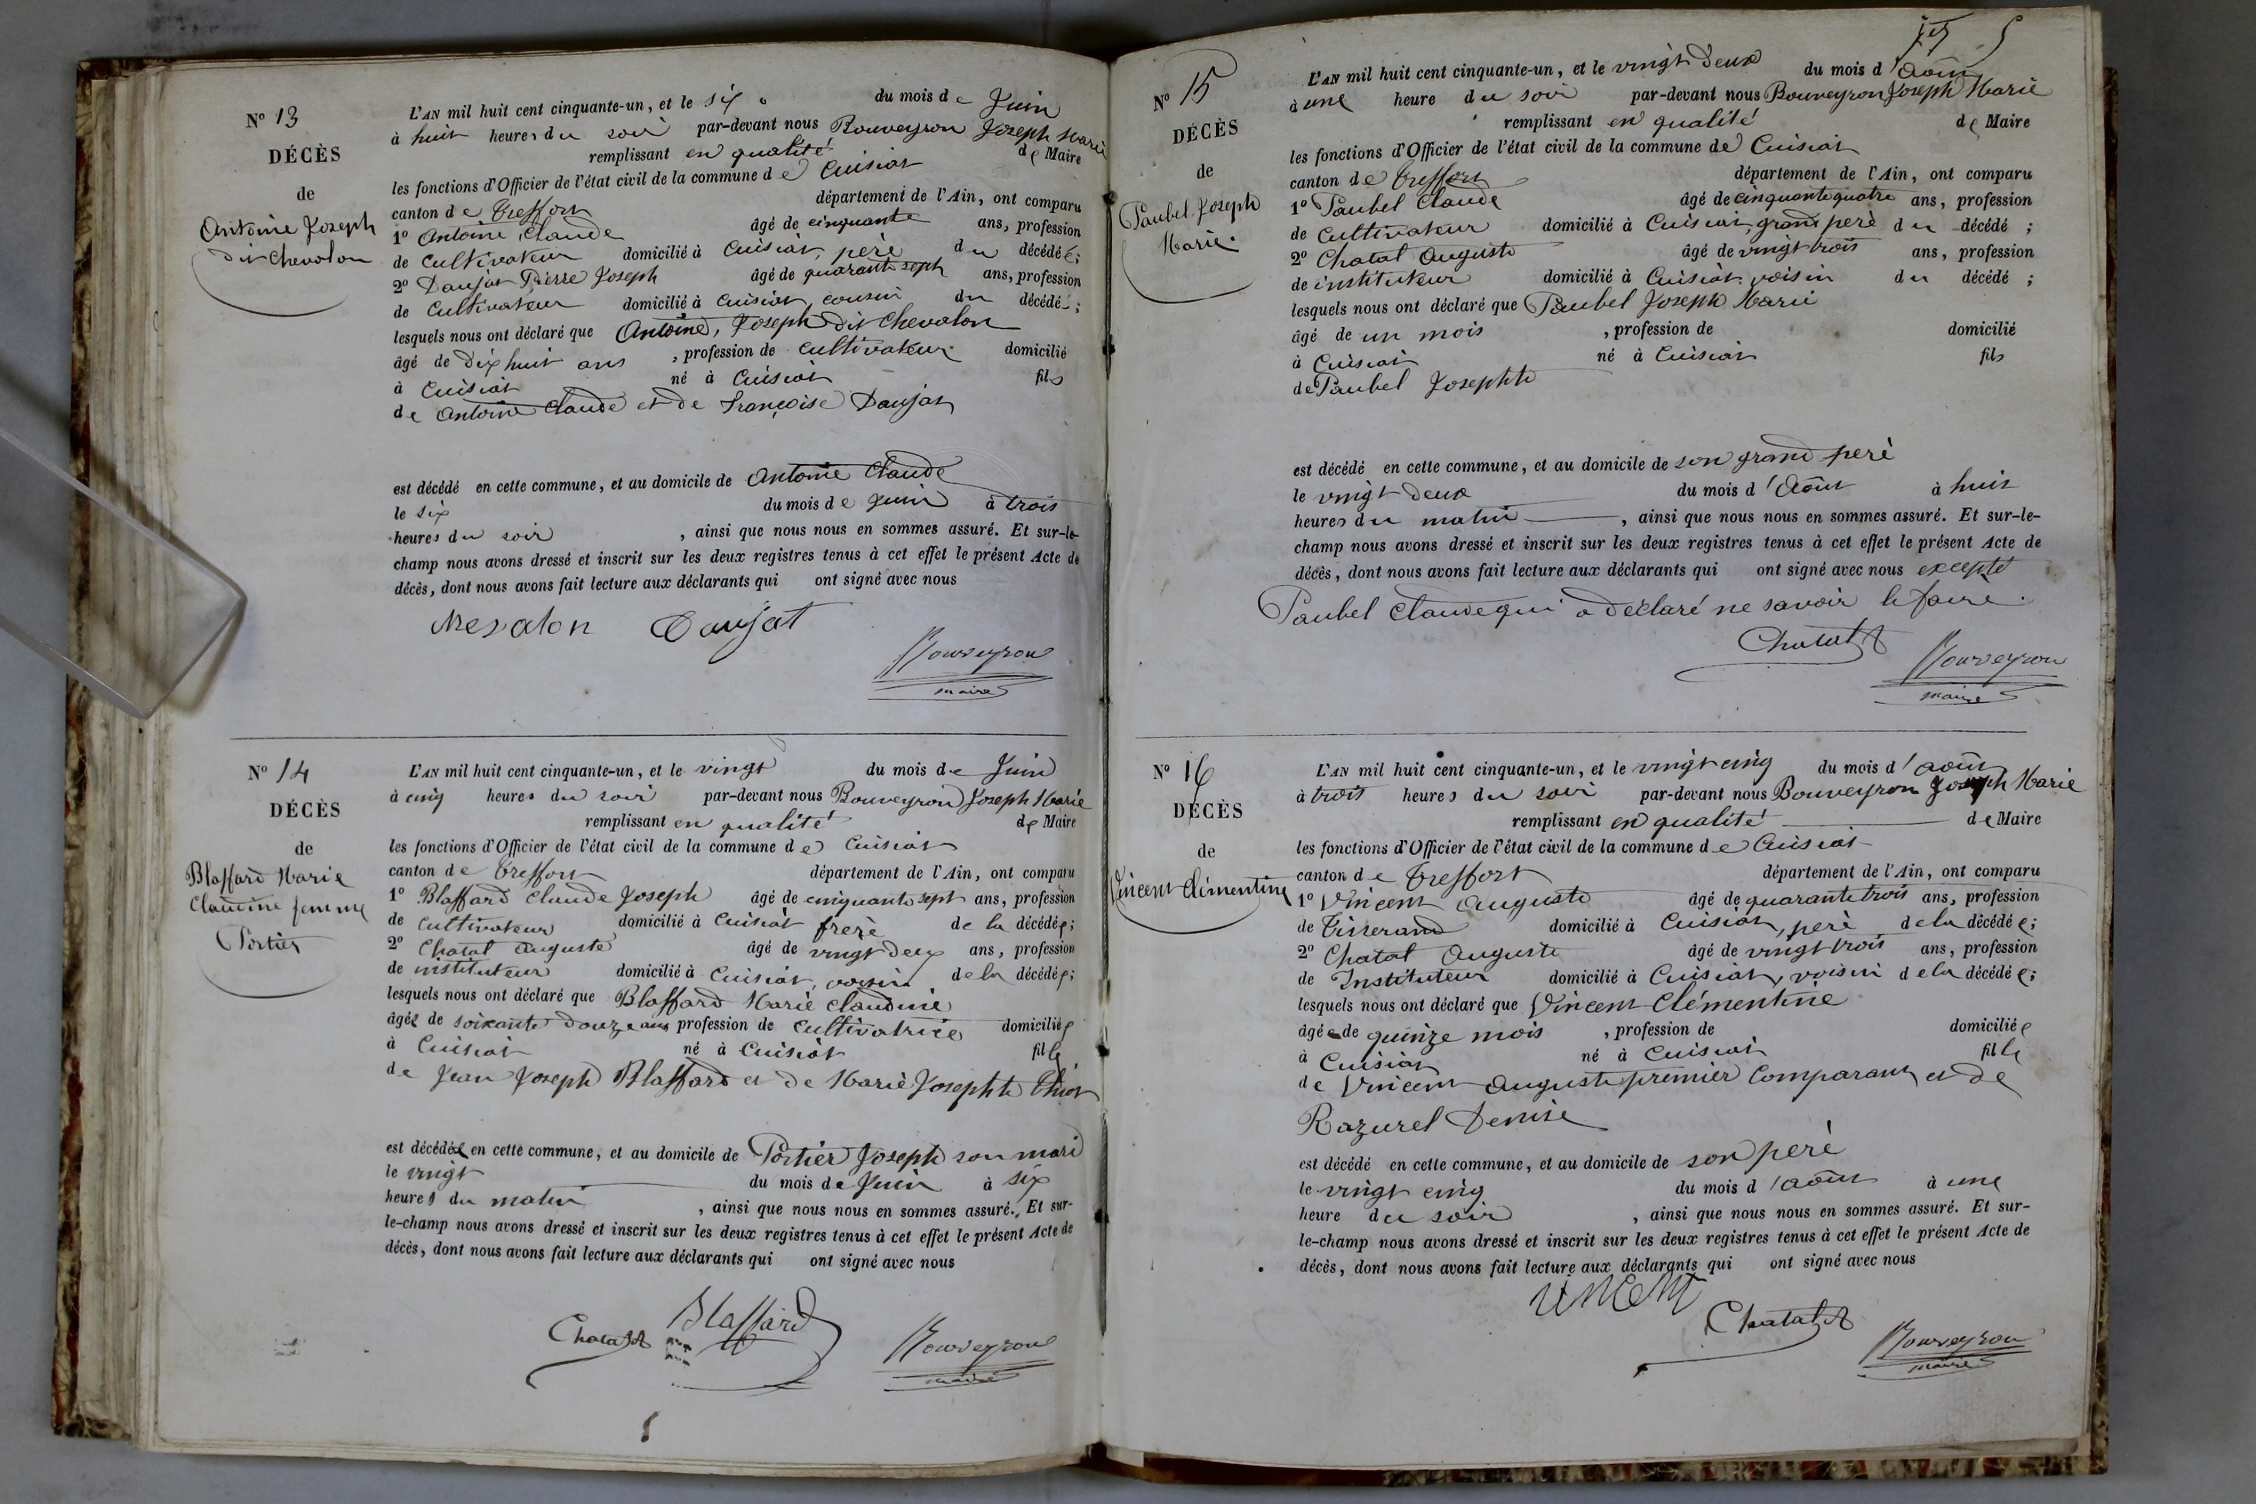 N° 13
DÉCÈS
de
Antoine Joseph
dit Chevalon
L'AN mil huit cent cinquante-un, et le six du mois de Juin
à huit heures du soir par-devant nous Bouveyron Joseph Marie
remplissant en qualité de Maire
les fonctions d'Officier de l'état civil de la commune de Cuisiat
canton de Treffort département de l'Ain, ont comparu
1° Antoine Claude âgé de cinquante ans, profession
de Cultivateur domicilié à Cuisiat, père du décédé;
2° Daujat Pierre Joseph âgé de quarante sept ans, profession
de Cultivateur domicilié à Cuisiat, cousin du décédé;
lesquels nous ont déclaré que Antoine, Joseph dit Chevalon
âgé de dix huit ans, profession de cultivateur domicilié
à Cuisiat né à Cuisiat fils
de Antoine Claude et de Françoise Daujat
est décédé en cette commune, et au domicile de Antoine Claude
le six du mois de Juin à trois
heures du soir, ainsi que nous nous en sommes assuré. Et sur-le-
champ nous avons dressé et inscrit sur les deux registres tenus à cet effet le présent Acte de
décès, dont nous avons fait lecture aux déclarants qui ont signé avec nous
Daujat
Bouveyron
maire
N° 14
DÉCÈS
de
Blaffard Marie
Claudine femme
Portier
L'AN mil huit cent cinquante-un, et le vingt du mois de Juin
à cinq heures du soir par-devant nous Bouveyron Joseph Marie
remplissant en qualité de Maire
les fonctions d'Officier de l'état civil de la commune de Cuisiat
canton de Treffort département de l'Ain, ont comparu
1° Blaffard Claude Joseph âgé de cinquante sept ans, profession
de cultivateur domicilié à Cuisiat frère de la décédée;
2° Chatal Auguste âgé de vingt deux ans, profession
de instituteur domicilié à Cuisiat, voisin de la décédée;
lesquels nous ont déclaré que Blaffard Marie Claudine
âgée de soixante douze ans profession de cultivatrice domiciliée
à Cuisiat né à Cuisiat fille
de Jean Joseph Blaffard et de Marie Josephte Thiot
est décédée en cette commune, et au domicile de Portier Joseph son mari
le vingt du mois de Juin à six
heures du matin, ainsi que nous nous en sommes assuré. Et sur-
le-champ nous avons dressé et inscrit sur les deux registres tenus à cet effet le présent Acte de
décès, dont nous avons fait lecture aux déclarants qui ont signé avec nous
Chatal A Blaffard
Bouveyron
maire
5
N° 15
DÉCÈS
de
Paubel Joseph
Marie.
L'AN mil huit cent cinquante-un, et le vingt deux du mois d'août
à une heure du soir par-devant nous Bouveyron Joseph Marie
remplissant en qualité de Maire
les fonctions d'Officier de l'état civil de la commune de Cuisiat
canton de Treffort département de l'Ain, ont comparu
1° Paubel Claude âgé de cinquante quatre ans, profession
de Cultivateur domicilié à Cuisiat, grand père du décédé;
2° Chatal Auguste âgé de vingt trois ans, profession
de instituteur domicilié à Cuisiat voisin du décédé;
lesquels nous ont déclaré que Paubel Joseph Marie
âgé de un mois, profession de domicilié
à Cuisiat né à Cuisiat fils
de Paubel Josephte
est décédé en cette commune, et au domicile de son grand père
le vingt deux du mois d'août à huit
heures du matin, ainsi que nous nous en sommes assuré. Et sur-le-
champ nous avons dressé et inscrit sur les deux registres tenus à cet effet le présent Acte de
décès, dont nous avons fait lecture aux déclarants qui ont signé avec nous excepté
Paubel Claude qui a déclaré ne savoir le faire.
Chatal A
Bouveyron
maire
N° 16
DÉCÈS
de
Vincent Clémentine
L'AN mil huit cent cinquante-un, et le vingt cinq du mois d'août
à trois heures du soir par-devant nous Bouveyron Joseph Marie
remplissant en qualité de Maire
les fonctions d'Officier de l'état civil de la commune de Cuisiat
canton de Treffort département de l'Ain, ont comparu
1° Vincent Auguste âgé de quarante trois ans, profession
de Tisserand domicilié à Cuisiat, père de la décédée;
2° Chatal Auguste âgé de vingt trois ans, profession
de Instituteur domicilié à Cuisiat, voisin de la décédée;
lesquels nous ont déclaré que Vincent Clémentine
âgée de quinze mois, profession de domiciliée
à Cuisiat né à Cuisiat fille
de Vincent Auguste premier Comparant et de
Razurel Denise
est décédé en cette commune, et au domicile de son père
le vingt cinq du mois d'août à une
heure du soir, ainsi que nous nous en sommes assuré. Et sur-
le-champ nous avons dressé et inscrit sur les deux registres tenus à cet effet le présent Acte de
décès, dont nous avons fait lecture aux déclarants qui ont signé avec nous
vincent
Chatal A
Bouveyron
maire